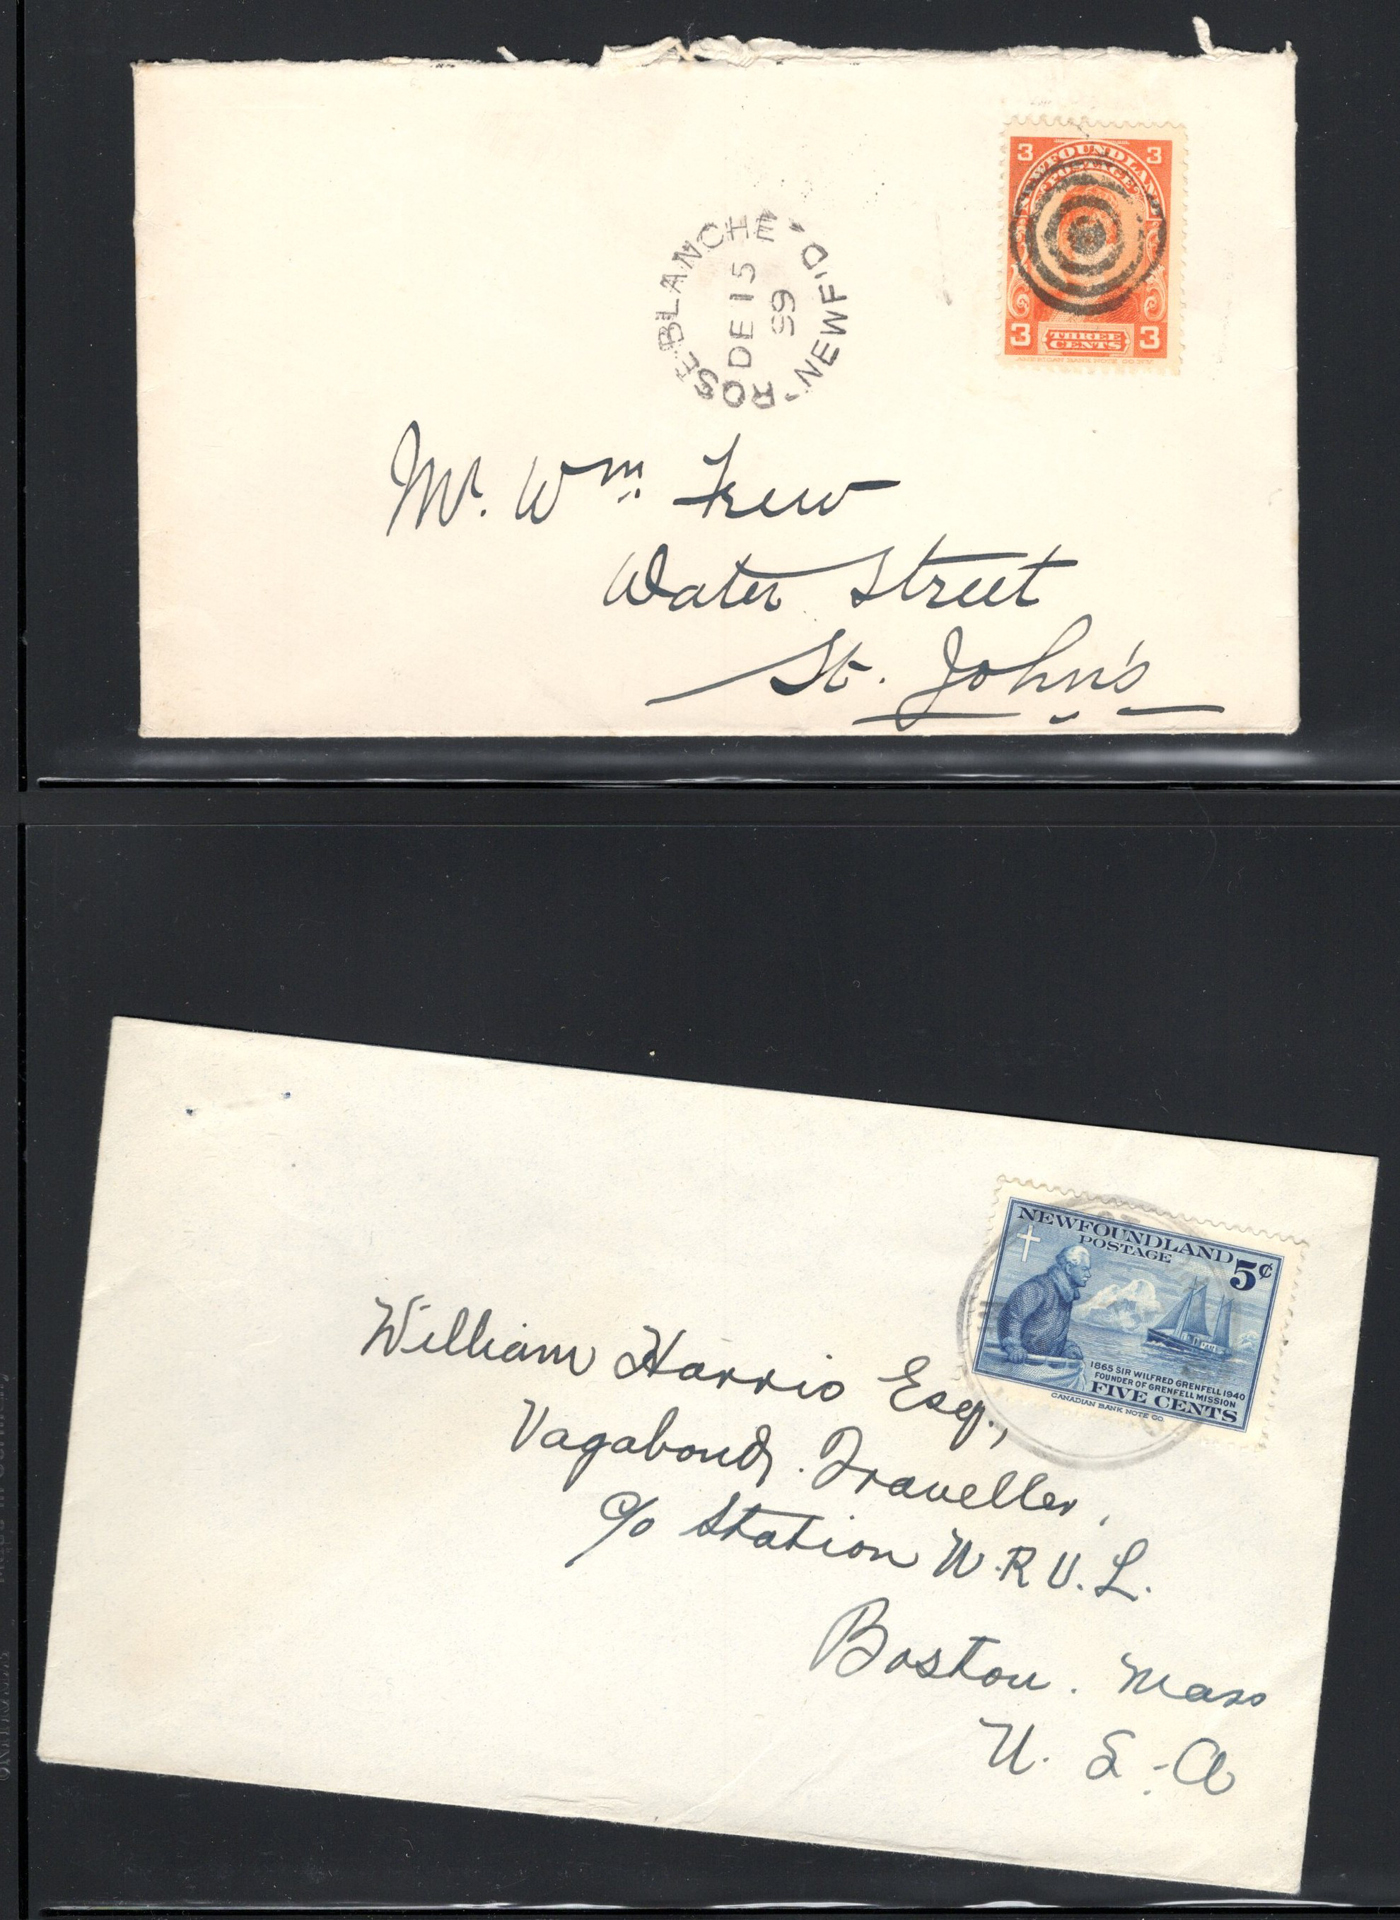 3 3
NEWFOUNDLAND
POSTAGE
3 THREE CENTS 3
AMERICAN BANK NOTE CO. N.Y.
ROSE-BLANCHE NEWF'D.
DE 15
99
Mr. Wm. Frew
Water Street
St. John's
NEWFOUNDLAND
POSTAGE
5¢
1865 SIR WILFRED GRENFELL 1940
FOUNDER OF GRENFELL MISSION
FIVE CENTS
CANADIAN BANK NOTE CO.
William Harris Esq.,
Vagabond. Traveller,
c/o Station W.R.U.L.
Boston. Mass
U. S. A